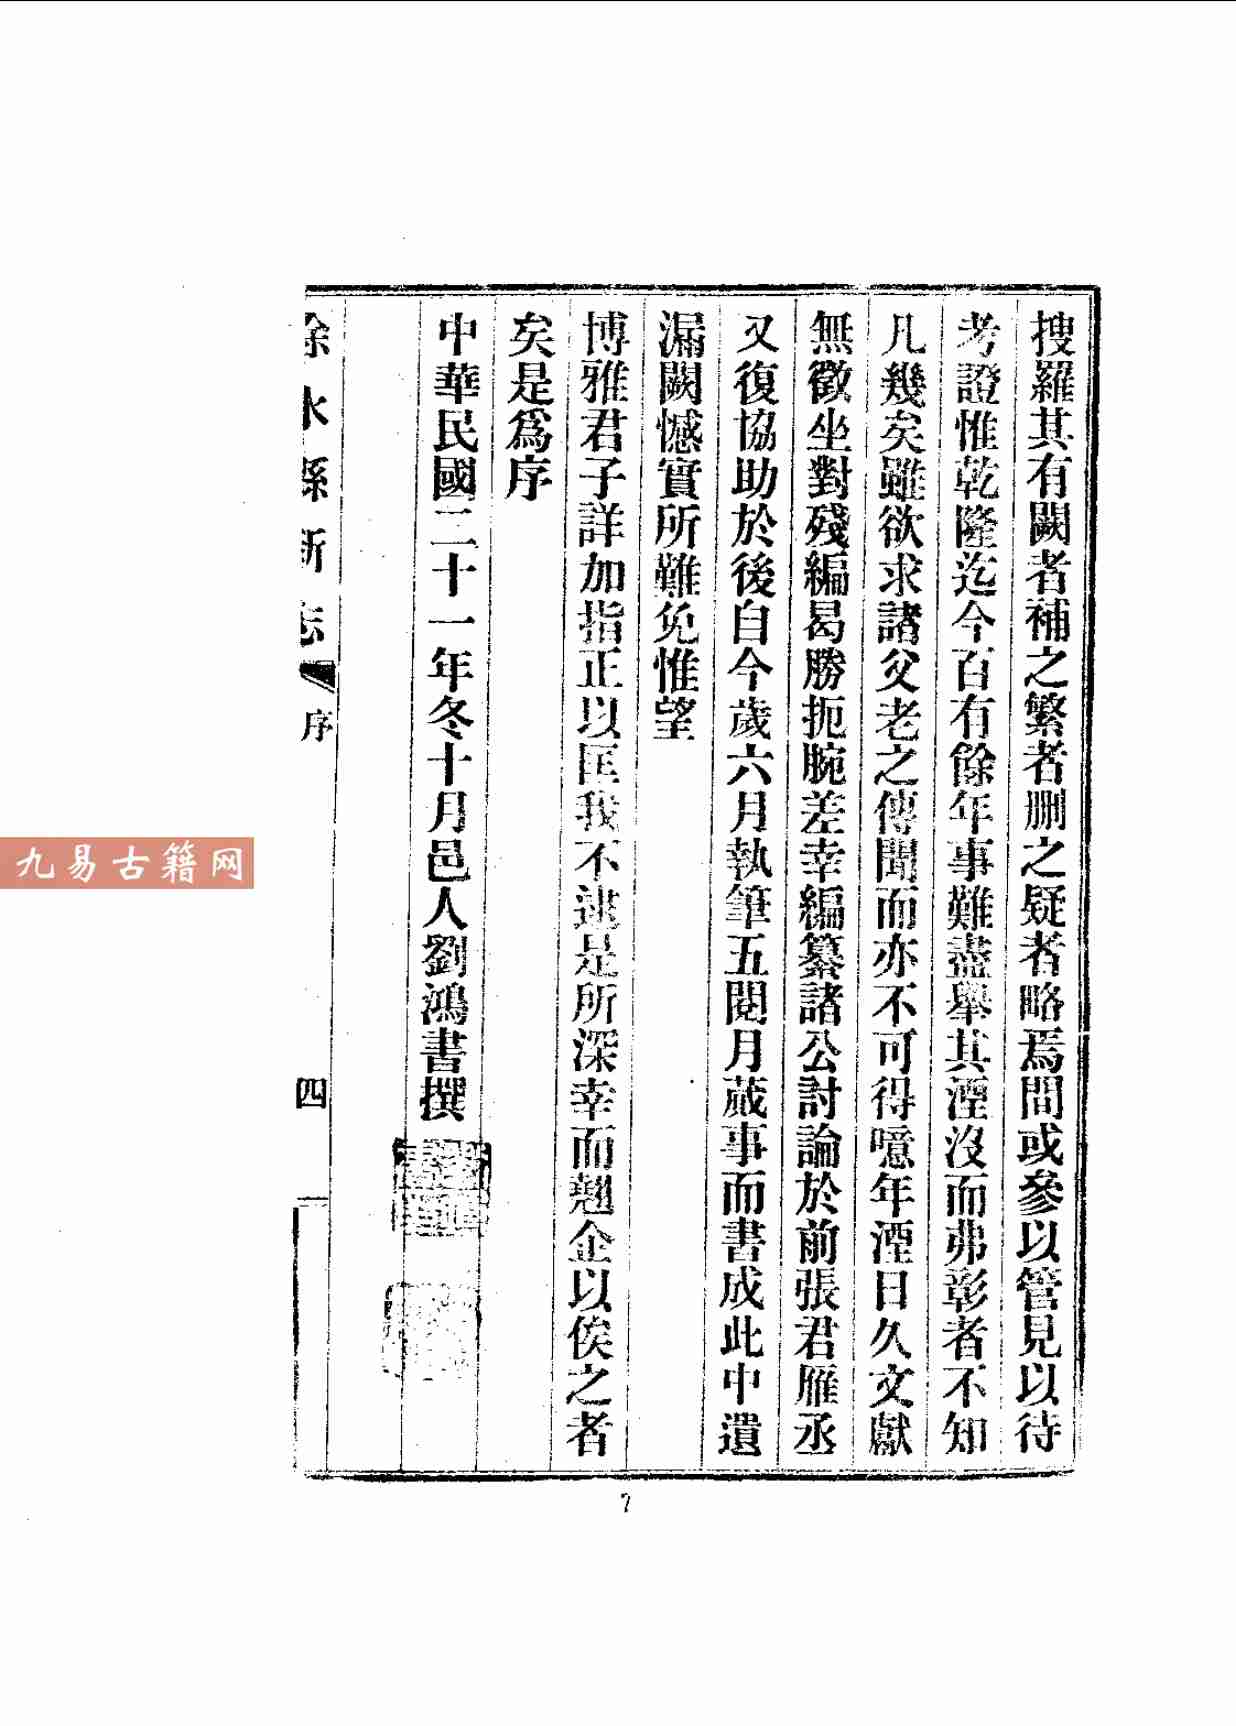 搜羅其有闕者補之繁者删之疑者略焉間或參以管見以待
考證惟乾隆迄今百有餘年事難盡舉其湮沒而弗彰者不知
凡幾矣雖欲求諸父老之傳聞而亦不可得噫年湮日久文獻
無徵坐對殘編曷勝扼腕差幸編纂諸公討論於前張君雁丞
又復協助於後自今歲六月執筆五閱月蕆事而書成此中遺
漏闕憾實所難免惟望
博雅君子詳加指正以匡我不逮是所深幸而翹企以俟之者
矣是爲序
中華民國二十一年冬十月邑人劉鴻書撰
徐水縣新志
序
四
7
九易古籍网